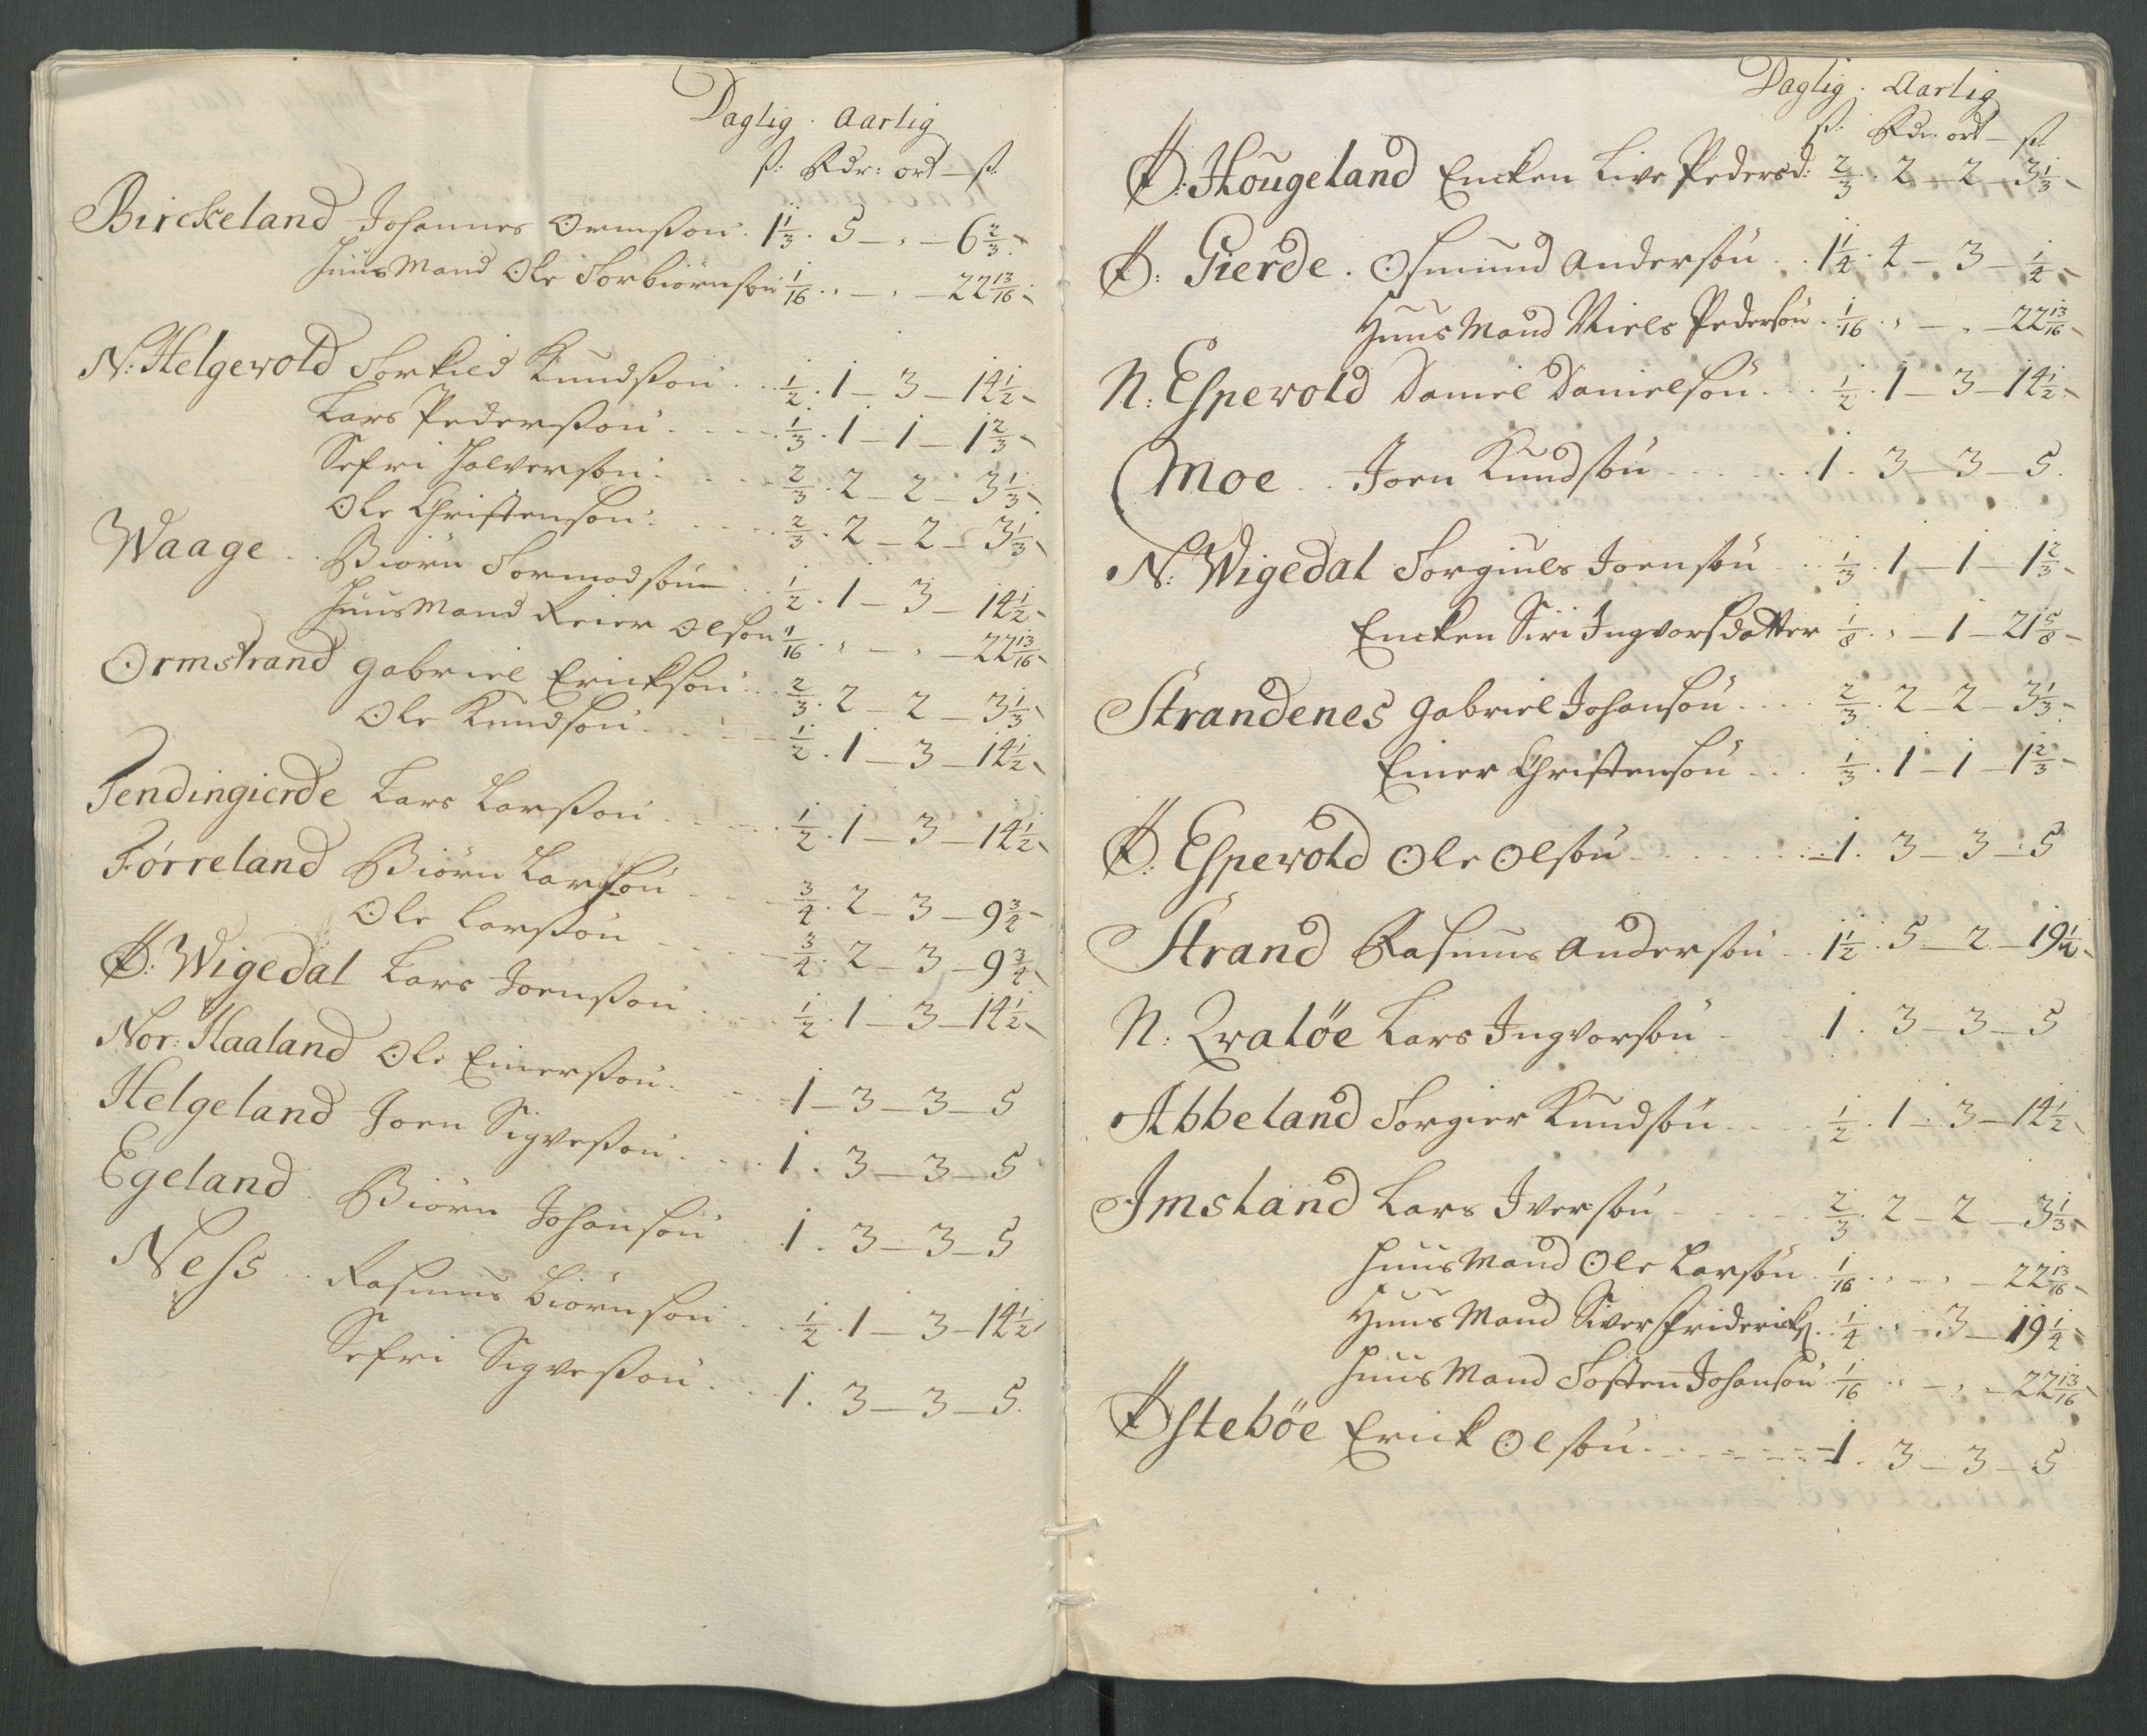 Daglig. Aarlig
ß: Rdr: ort – ß
Birckeland Johannes Ormsson. 1 1/3. 5 – „ – 6 2/3.
Huus Mand Ole Torbiørnson 1/16. „ – „ – 22 13/16.
N: Helgevold Torkild Knudsson 1/2. 1 – 3 – 14 1/2.
Lars Pedersson 1/3. 1 – 1 – 1 2/3
Sefri Halverson 2/3. 2 – 2 – 3 1/3
Ole Christenson 2/3. 2 – 2 – 3 1/3
Waage Biørn Tormodson 1/2. 1 – 3 – 14 1/2
Huus Mand Reier Olson 1/16. „ – „ – 22 13/16
Ormstrand Gabriel Erickson 2/3. 2 – 2 – 3 1/3
Ole Knudson 1/2. 1 – 3 – 14 1/2
Tendingierde Lars Larsson 1/2. 1 – 3 – 14 1/2
Førreland Biørn Larsson 3/4. 2 – 3 – 9 3/4
Ole Larsson 3/4. 2 – 3 – 9 3/4
Ø: Wigedal Lars Joensson 1/2. 1 – 3 – 14 1/2
Nor: Haaland Ole Einersson 1 – 3 – 3 – 5
Helgeland Joen Sigvesson 1. 3 – 3 – 5
Egeland Biørn Johanson 1. 3 – 3 – 5
Ness Rasmus Biørnson 1/2. 1 – 3 – 14 1/2
Sefri Sigvesson 1. 3 – 3 – 5
Daglig. Aarlig
ß: Rdr: ort – ß
Ø: Hougeland Encken Live Pedersd: 2/3. 2 – 2 – 3 1/3
Ø: Gierde. Osmund Andersøn 1 1/4. 4 – 3 – 1/4
Huus Mand Niels Pedersøn 1/16. „ – „ – 22 13/16
N: Espevold Daniel Danielsøn 1/2. 1 – 3 – 14 1/2
Moe Joen Knudsøn 1. 3 – 3 – 5.
N: Wigedal Torgiuls Joensøn 1/3. 1 – 1 – 1 2/3
Encken Siri Ingvorsdatter 1/8. „ – 1 – 21 5/8
Strandenes Gabriel Johansøn 2/3. 2 – 2 – 3 1/3
Einer Christensøn 1/3. 1 – 1 – 1 2/3
Ø: Espevold Ole Olsøn 1. 3 – 3 – 5
Strand Rasmus Andersøn 1 1/2. 5 – 2 – 19 1/2
N: Qvaløe Lars Ingvorsøn 1. 3 – 3 – 5
Abbeland Torgier Knudsøn 1/2. 1 – 3 – 14 1/2
Imsland Lars Iversøn 2/3. 2 – 2 – 3 1/3
Huus Mand Ole Larsøn 1/16. „ – „ – 22 13/16
Huus Mand Siver Friderick 1/4. „ – 3 – 19 1/4
Huus Mand Tosten Johansøn 1/16. „ – „ – 22 13/16
Østebøe Erick Olsøn 1. 3 – 3 – 5